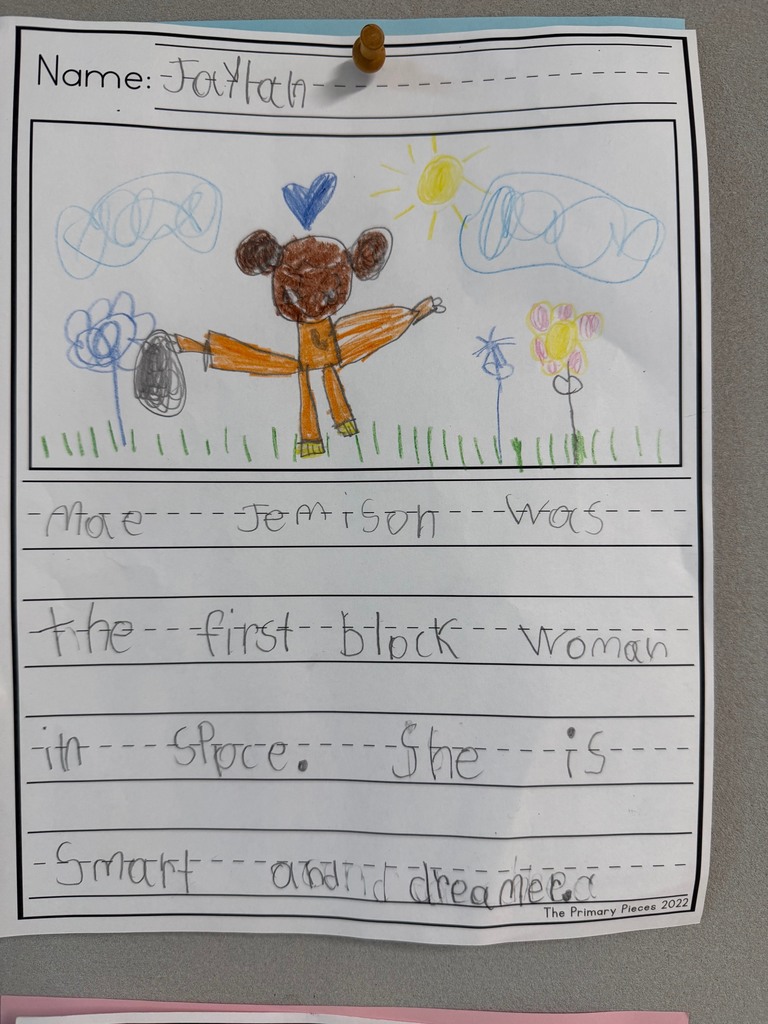 Name: Jaylah
Mae Jemison was
the first black woman
in space. She is
Smart and dreamer.
The Primary Pieces 2022